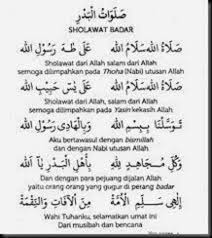 صَلَوَاتُ الْبَدْرِ
SHOLAWAT BADAR
صَلَاةُ اللهِ سَلَامُ اللهِ عَلَى طٰهَ رَسُوْلِ اللهِ
Sholawat dari Allah, salam dari Allah
semoga dilimpahkan pada Thoha (Nabi) utusan Allah
صَلَاةُ اللهِ سَلَامُ اللهِ عَلَى يٰسٓ حَبِيْبِ اللهِ
Sholawat dari Allah, salam dari Allah
semoga dilimpahkan pada Yasin kekasih Allah
تَوَسَّلْنَا بِبِسْمِ اللهِ وَبِالْهَادِى رَسُوْلِ اللهِ
Aku bertawasul dengan bismillah
dan dengan Nabi utusan Allah
وَكُلِّ مُجَاهِدٍ لِلّٰهِ بِاَهْلِ الْبَدْرِ يَا اَللهُ
Dan dengan para pejuang dijalan Allah
yaitu orang orang yang gugur di perang badar
اِلٰهِى سَلِّمِ الْاُمَّةَ مِنَ الْاٰفَاتِ وَالنِّقْمَةِ
Wahi Tuhanku, selamatkan umat ini
Dari musibah dan bencana